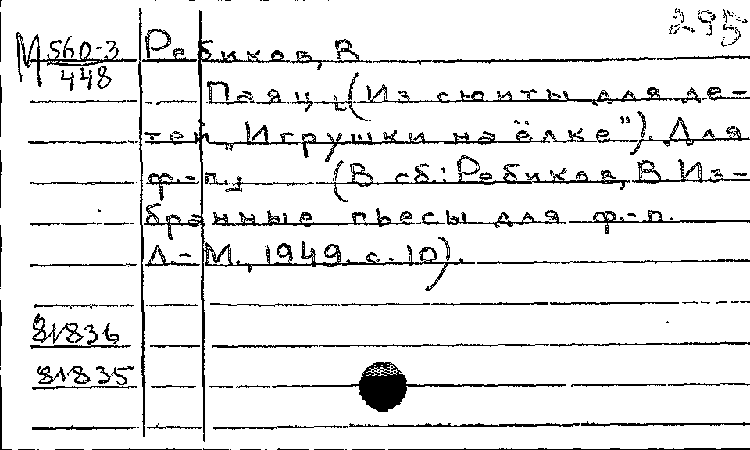 295
М 560-3 Ребиков, В
448 Паяц, (Из сюиты для де-
тей „Игрушки на ёлке"). Для
ф.-п., (В сб.: Ребиков, В Из-
бранные пьесы для ф.-п.
Л.-М., 1949. с. 10).
81836
81835